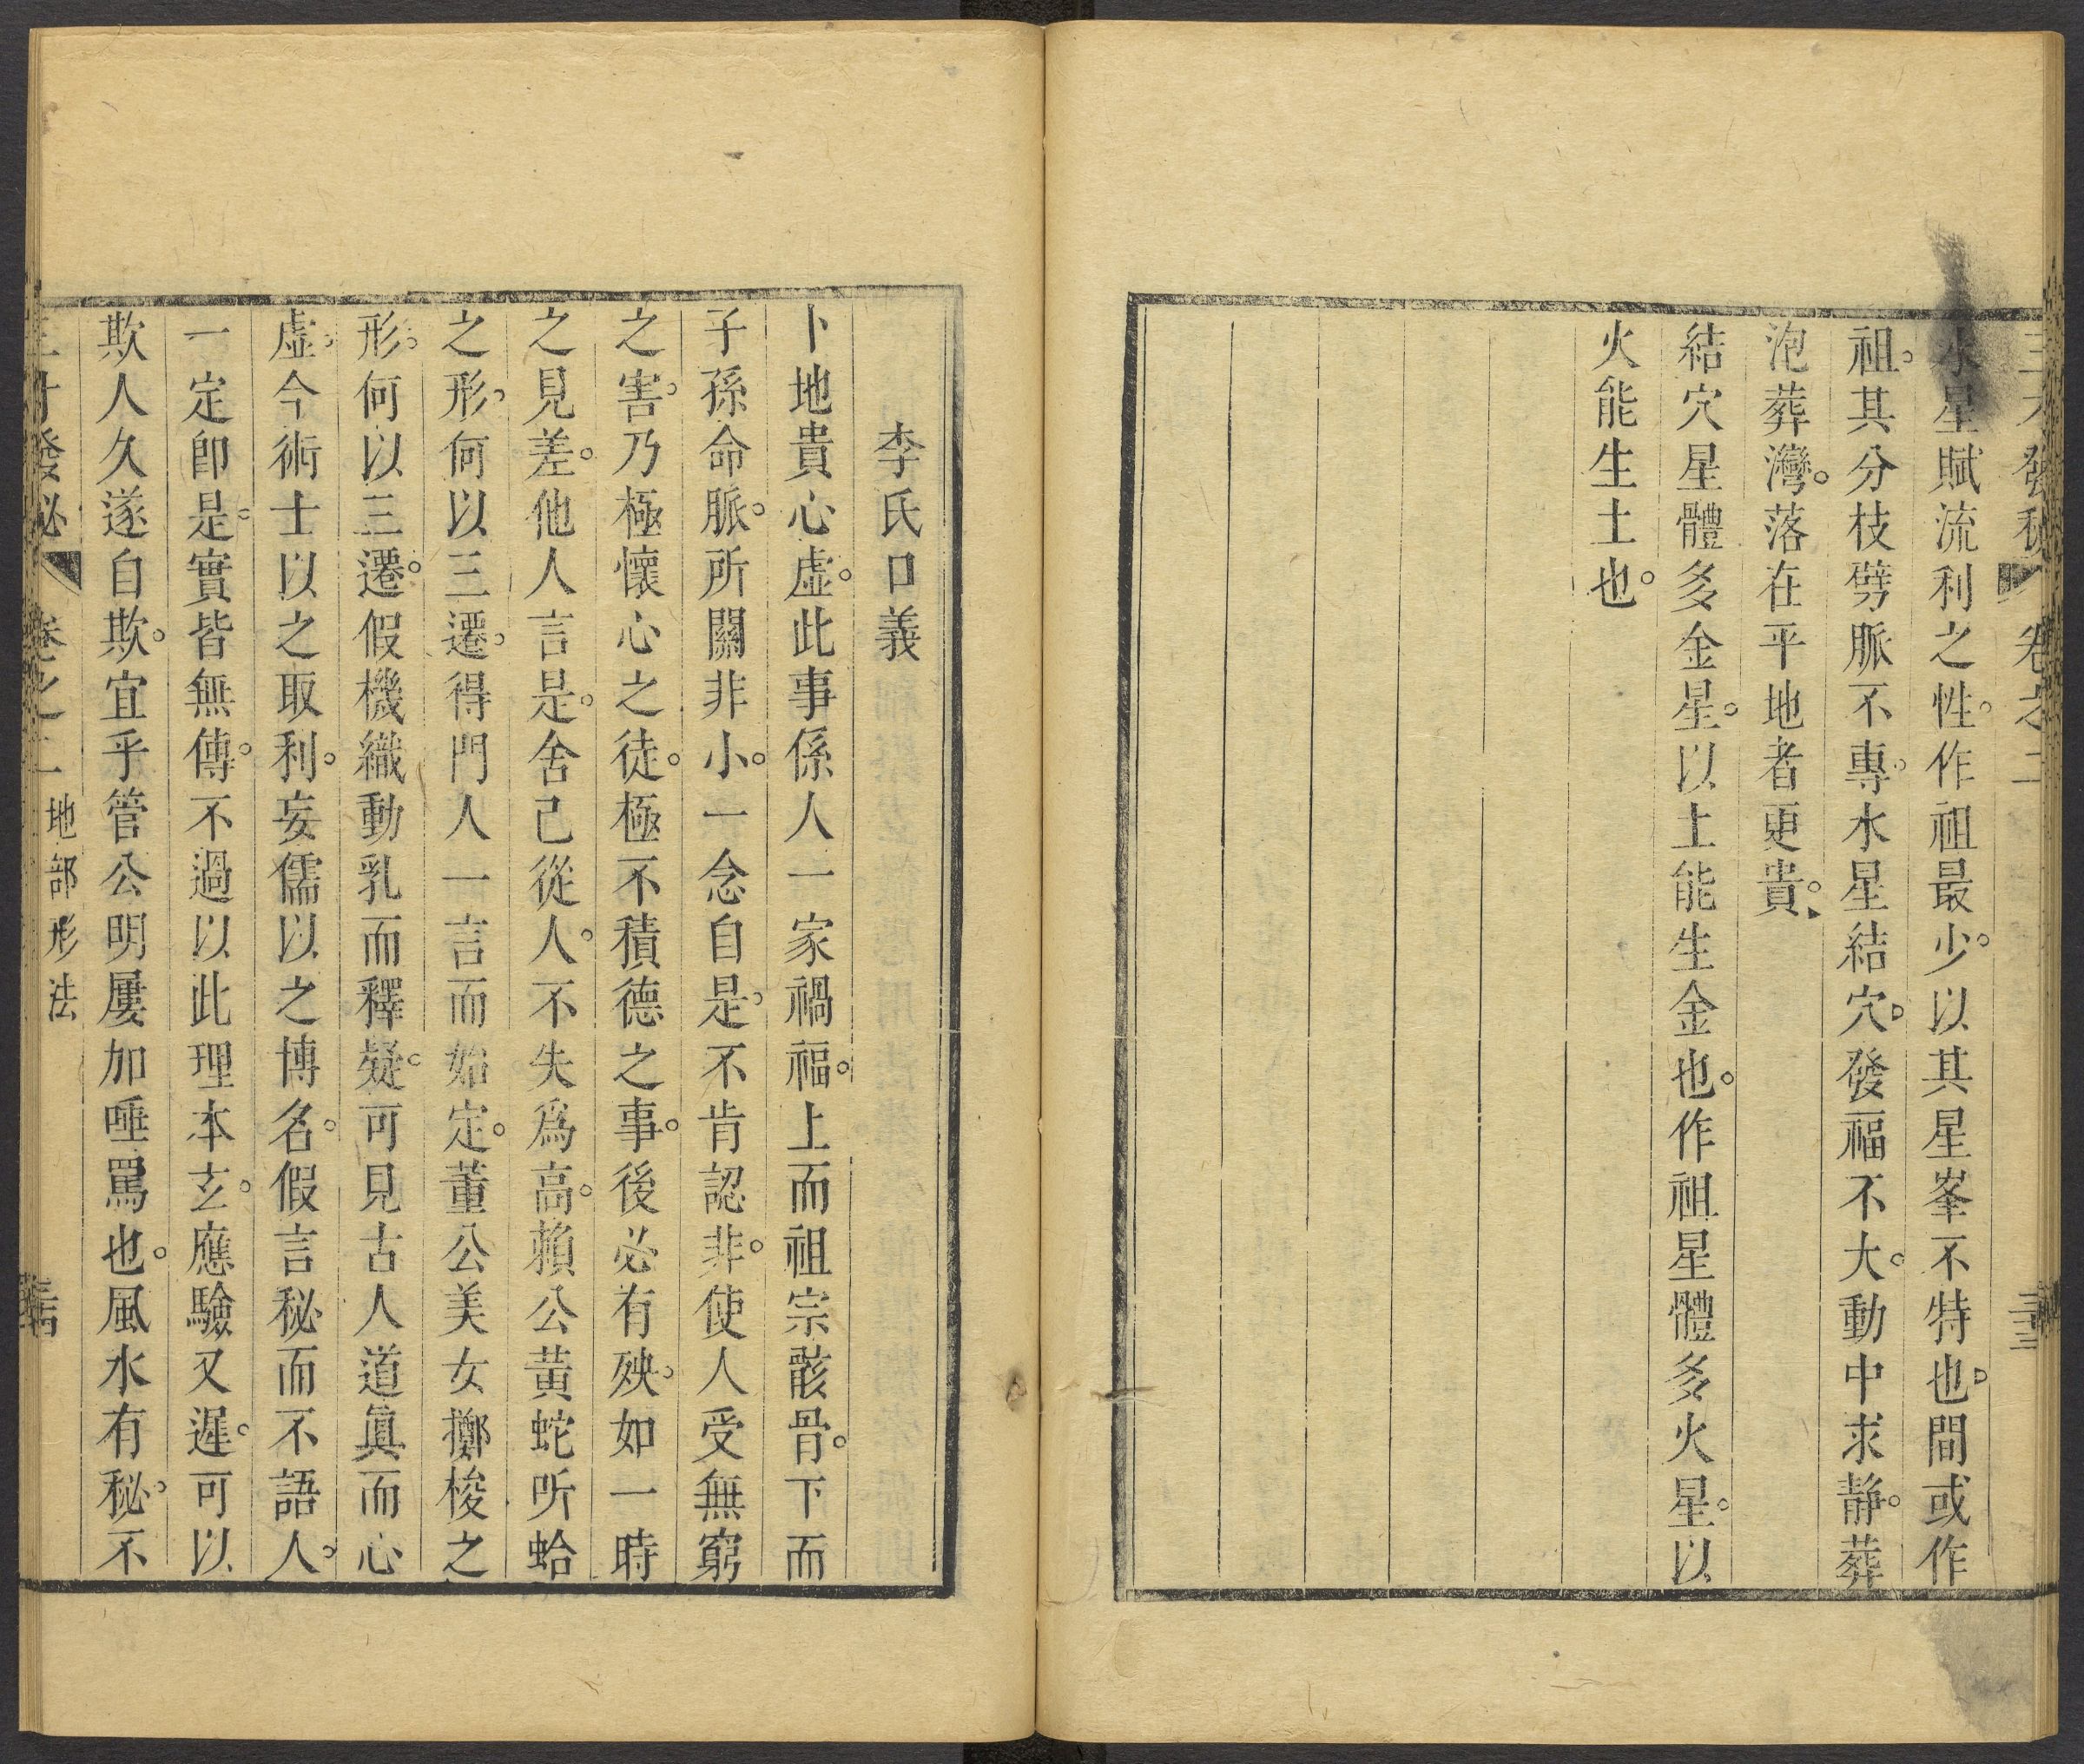 三才發秘 卷之二
水星賦流利之性。作祖最少。以其星峯不特也。間或作
祖。其分枝劈脈不專。水星結穴。發福不大。動中求靜。葬
泡葬灣。落在平地者更貴。
結穴星體多金星。以土能生金也。作祖星體多火星。以
火能生土也。
李氏口義
卜地貴心虛。此事係人一家禍福。上而祖宗骸骨。下而
子孫命脈。所關非小。一念自是。不肯認非。使人受無窮
之害。乃極懷心之徒。極不積德之事。後必有殃。如一時
之見差。他人言是。舍己從人。不失爲高。賴公黃蛇听蛤
之形。何以三遷。得門人一言而始定。董公美女擲梭之
形。何以三遷。假機織動乳而釋疑。可見古人道眞而心
虛。今術士以之取利。妄儒以之博名。假言秘而不語人。
一定卽是。實皆無傳。不過以此理本玄。應驗又遲。可以
欺人久遂自欺。宜乎管公明屢加唾罵也。風水有秘。不
三才發秘 卷之二 地部形法